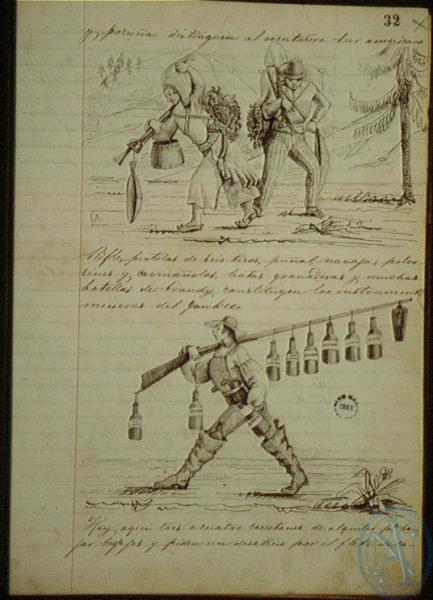 32
y poruña distinguen al aventurero Sur americano
Rifle, pistolas de seis tiros, puñal, navajas, polvo
rines y carmañolas, botas granaderas y muchas
botellas de brandy, constituyen los instrumentos
mineros del Yankee.
CHILE
Hay aqui tres o cuatro carretones de alquiler
jar bagajes y piden un desatino por el flete